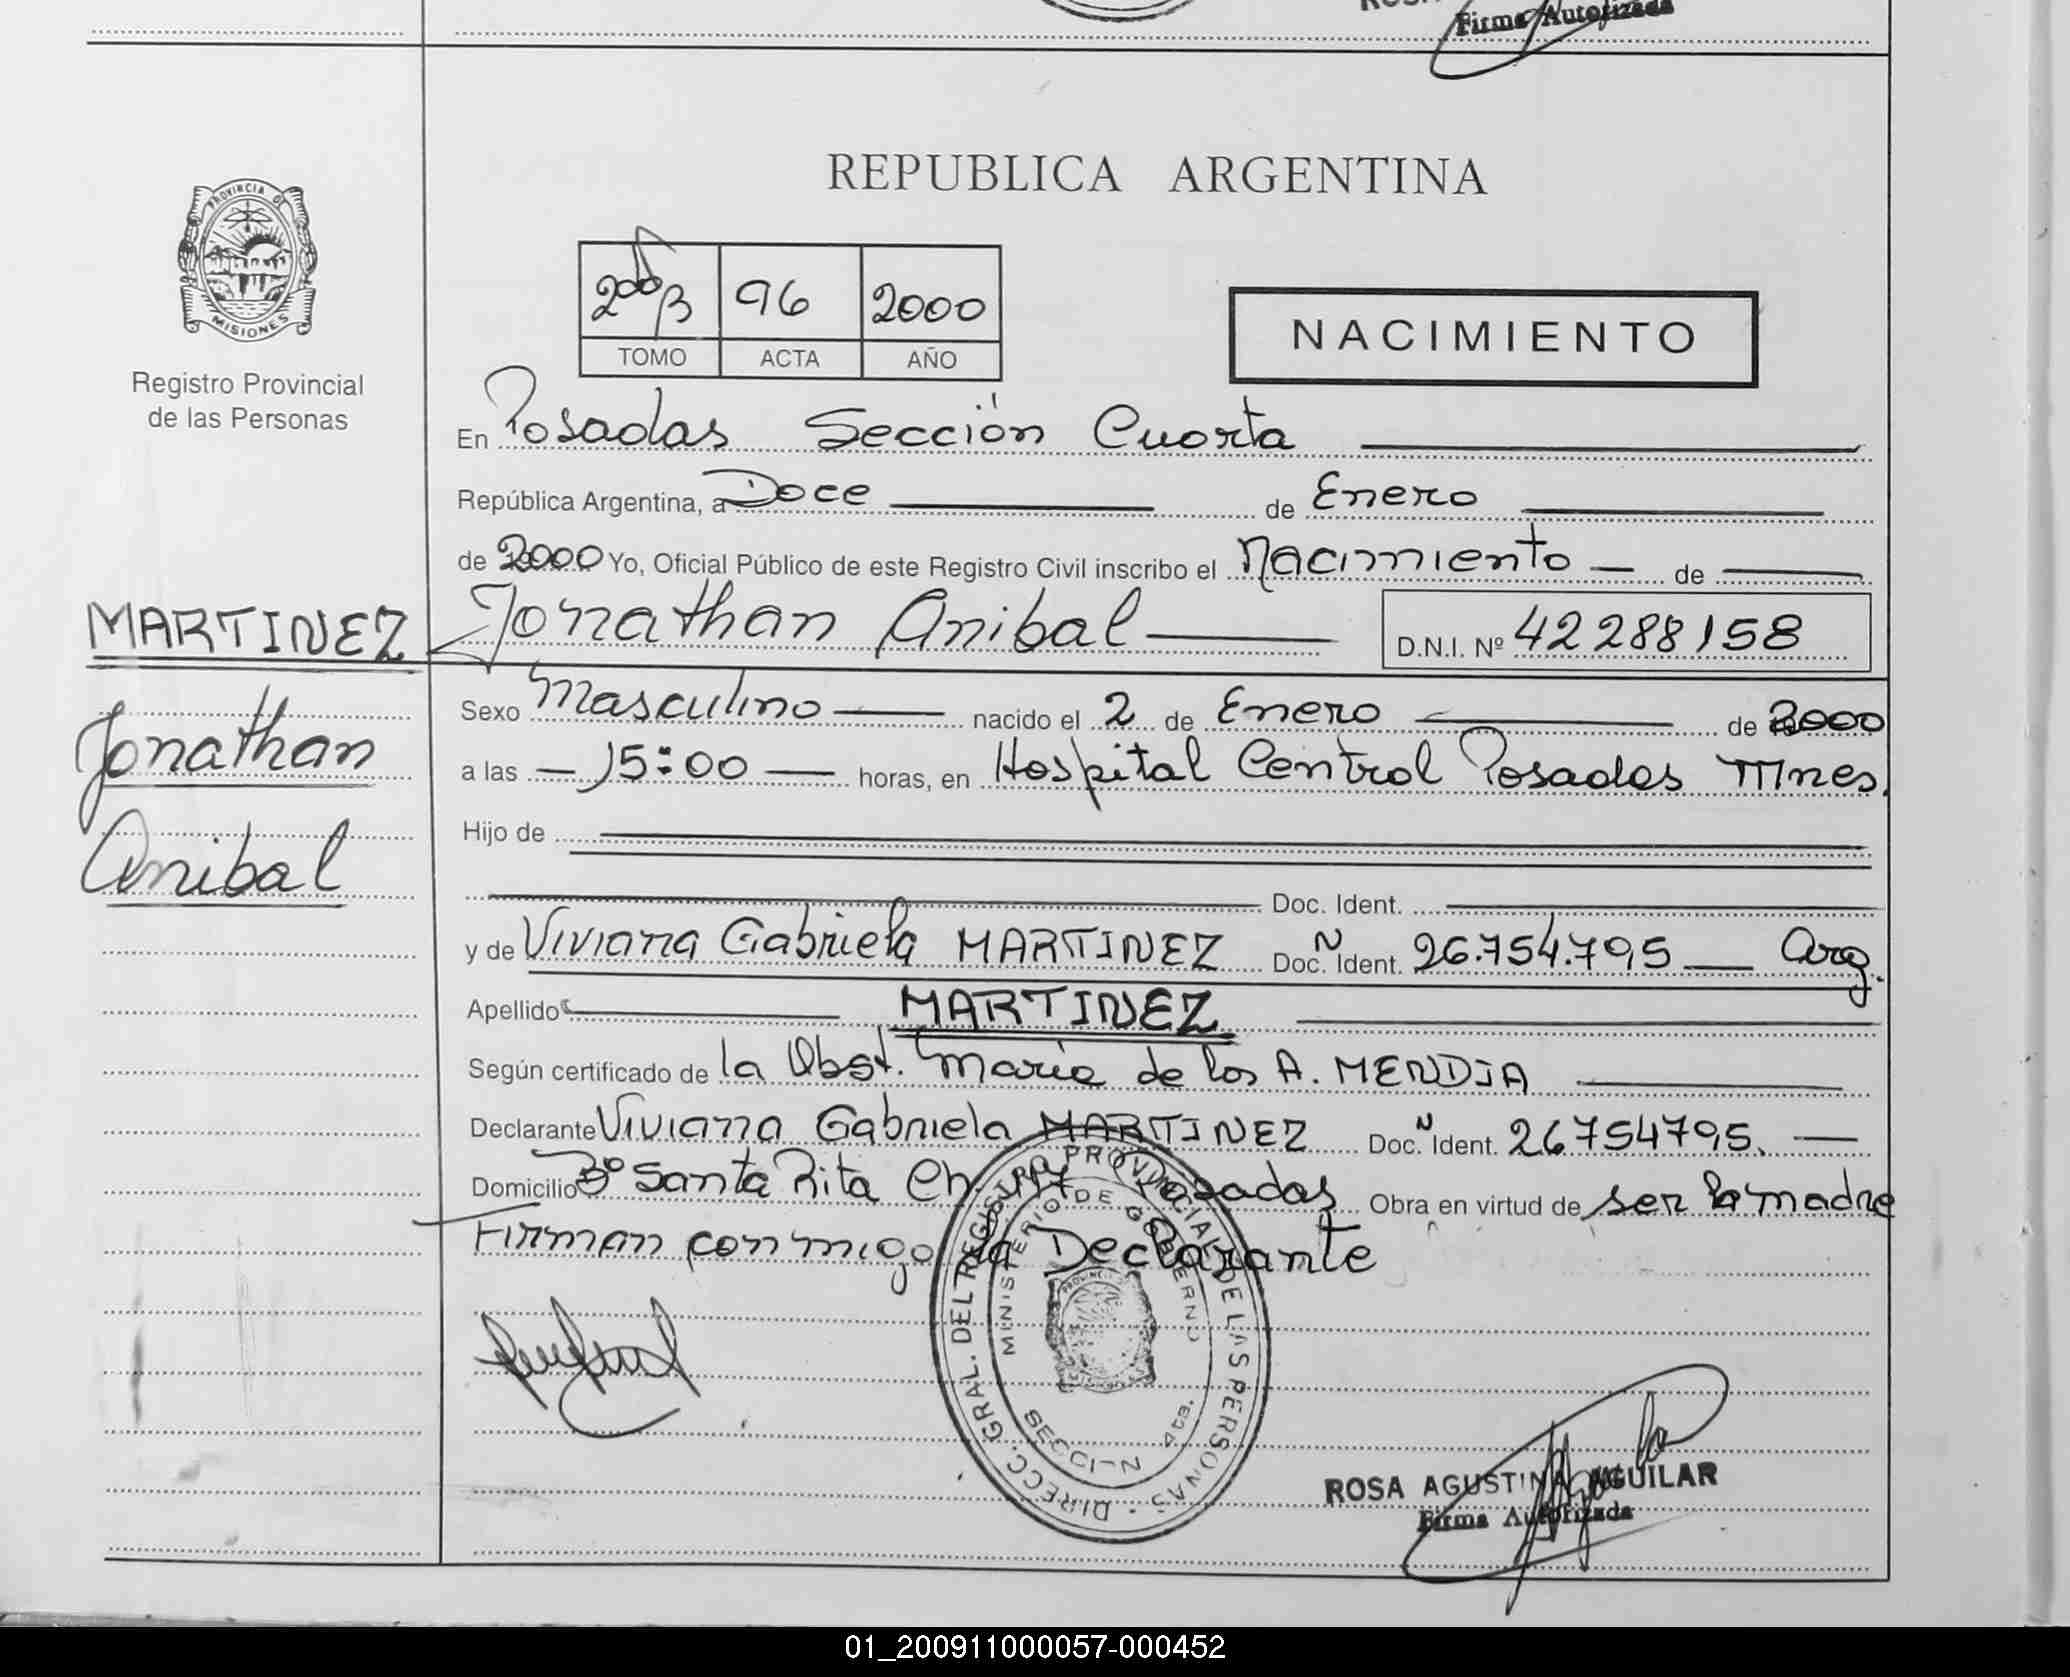 Firma Autorizada
REPUBLICA ARGENTINA
PROVINCIA DE
MISIONES
Registro Provincial
de las Personas
96 2000
TOMO ACTA AÑO
NACIMIENTO
En Posadas Sección Cuarta
República Argentina, a Doce de Enero
de 2000 Yo, Oficial Público de este Registro Civil inscribo el Nacimiento de
MARTINEZ Jonathan Anibal D.N.I. Nº 42288158
Jonathan
Anibal
Sexo Masculino nacido el 2 de Enero de 2000
a las 15:00 horas, en Hospital Central Posadas Mnes.
Hijo de
Doc. Ident.
y de Viviana Gabriela MARTINEZ Doc. N Ident. 26.754.795 Arg.
Apellido MARTINEZ
Según certificado de la Obst. María de los A. MENDIA
Declarante Viviana Gabriela MARTINEZ Doc. N Ident. 26754795.
Domicilio Bº Santa Rita Ch. Posadas Obra en virtud de ser la madre
Firman conmigo la Declarante
DIRECC. GRAL. DEL REGISTRO PROVINCIAL DE LAS PERSONAS
MINISTERIO DE GOBIERNO
SECCI-N 4ta.
ROSA AGUSTINA AGUILAR
Firma Autorizada
01_200911000057-000452